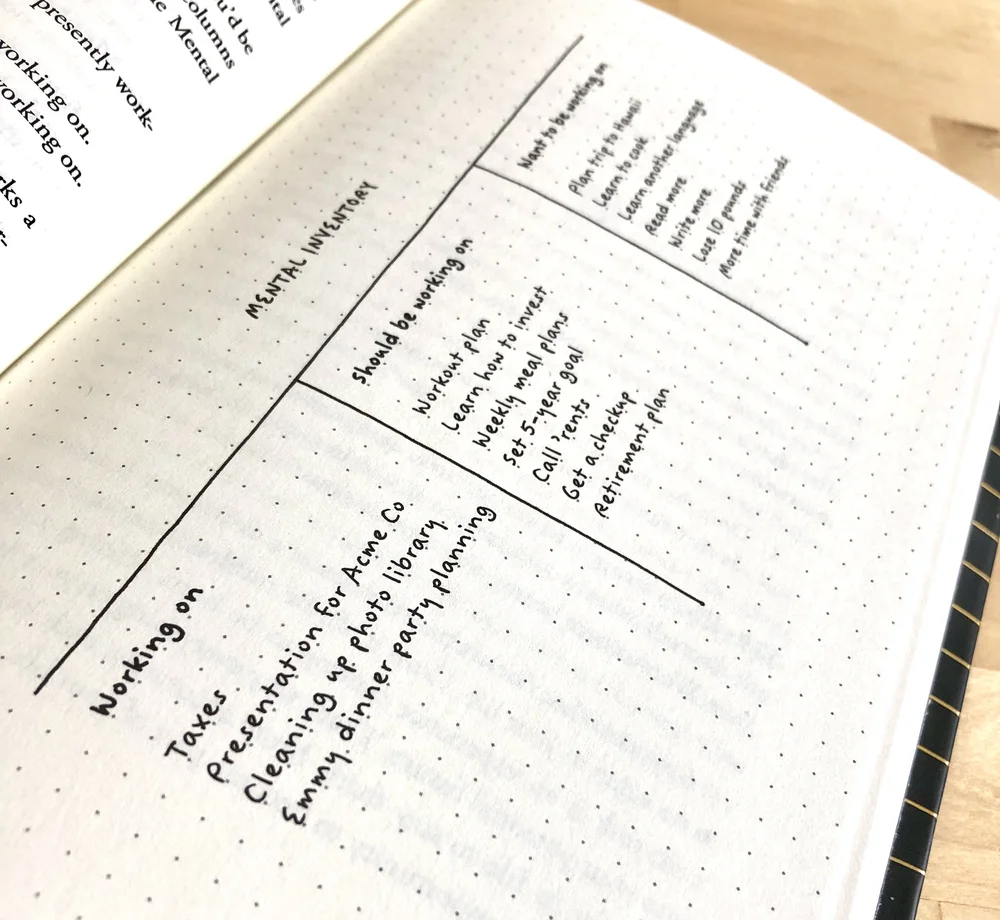 es
ntal
u'd be
olumns
e Mental
presently work-
working on.
working on.
rks a
r-
MENTAL INVENTORY
Working on
Taxes
Presentation for Acme.Co
Cleaning up photo library.
Emmy dinner party planning
Should be working on
Workout plan
Learn how to invest
Weekly meal plans
Set 5-year goal
Call 'rents
Get a checkup
Retirement plan
Want to be working on
Plan trip to Hawaii
Learn to cook
Learn another language
Read more
Write more
Lose 10 pounds
More time with friends